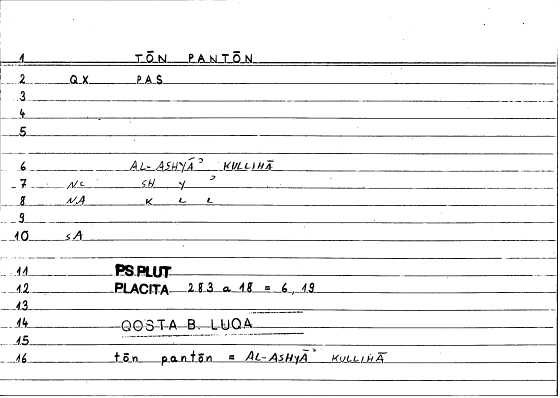 1 TŌN PANTŌN
2 QX PAS
3
4
5
6 AL-ASHYĀʾ KULLIHĀ
7 NC SH Y ʾ
8 NA K L L
9
10 SA
11 PS.PLUT
12 PLACITA 283 a 18 = 6, 19
13
14 QOSTA B. LUQA
15
16 tōn pantōn = AL-ASHYĀʾ KULLIHĀ